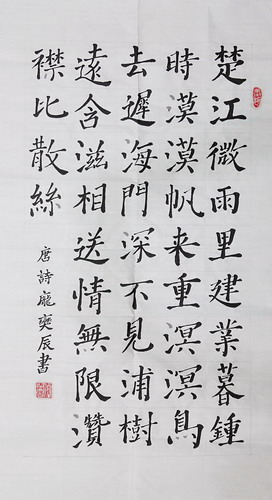 楚江微雨里建業暮鍾
時漠漠帆来重溟溟鳥
去遲海門深不見浦樹
遠含滋相送情無限灒
襟比散絲
唐詩龐奭辰書